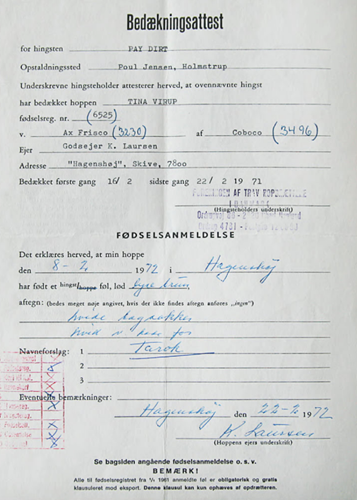 Bedækningsattest
for hingsten PAY DIRT
Opstaldningssted Poul Jensen, Holmstrup
Underskrevne hingsteholder attesterer herved, at ovennævnte hingst
har bedækket hoppen TINA VIRUP
fødselsreg. nr. (6525)
v. Ax Frisco (3230) af Coboco (3496)
Ejer Godsejer K. Laursen
Adresse "Hagenshøj", Skive, 7800
Bedækket første gang 16/2 sidste gang 22/2 1971
AF TRAV
DANMARK
(Hingsteholders underskrift)
FØDSELSANMELDELSE
Det erklæres herved, at min hoppe
den 8-2 1972 i Hagenshøj
har født et hingst/hoppe føl, lød lyse brun
aftegn: (bedes meget nøje angivet, hvis der ikke findes aftegn anføres „ingen")
hvide bagkoder
hvid v. for
Navneforslag: 1 Tarok
2
3
Eventuelle bemærkninger:
Hagenshøj den 22-2 1972
K. Laursen
(Hoppens ejers underskrift)
Se bagsiden angående fødselsanmeldelse o. s. v.
BEMÆRK!
Alle til fødselsregistret fra 1/1 1961 anmeldte føl er obligatorisk og gratis
klausuleret mod eksport. Denne klausul kan kun ophæves af opdrætteren.